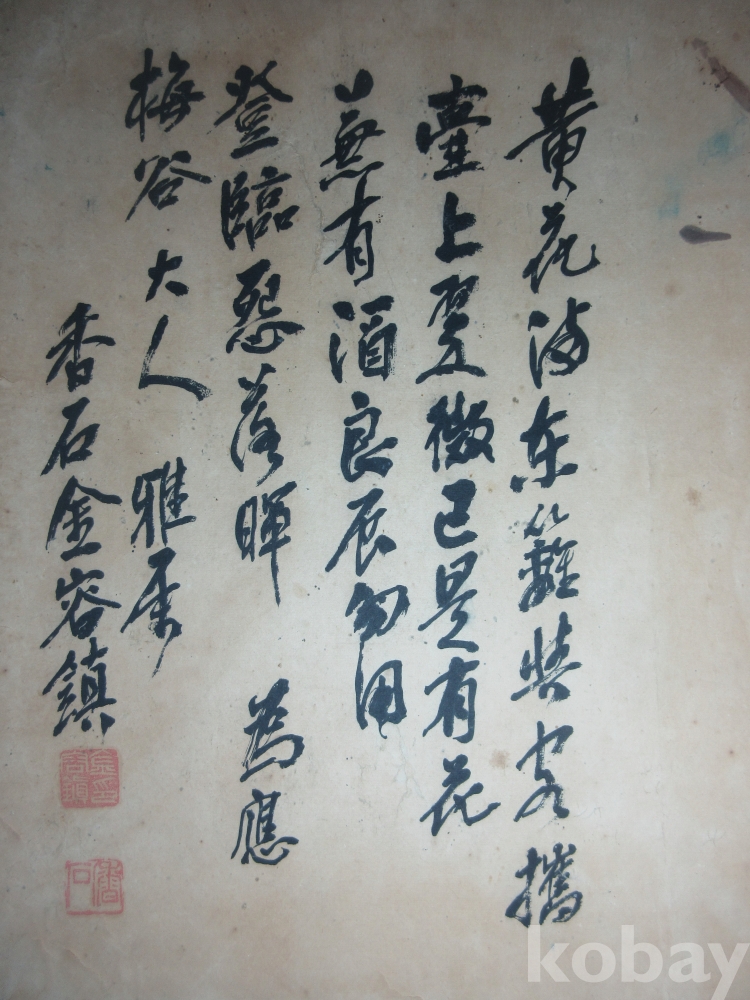 黃花滿東籬與客攜
壺上翠微已是有花
兼有酒良辰勿用
登臨怨落暉 為應
梅谷大人 雅屬
香石金容鎮
香石
kobay